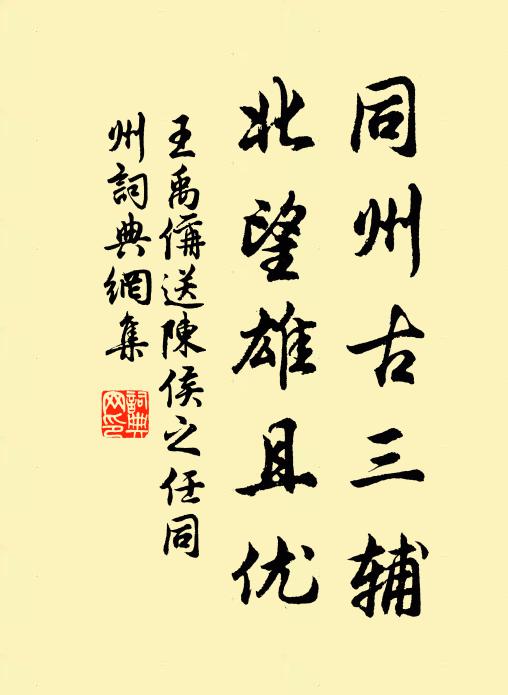 同州古三辅
北望雄且优
王禹偁送陳侯之任同
州詞典網集
詞典
网印